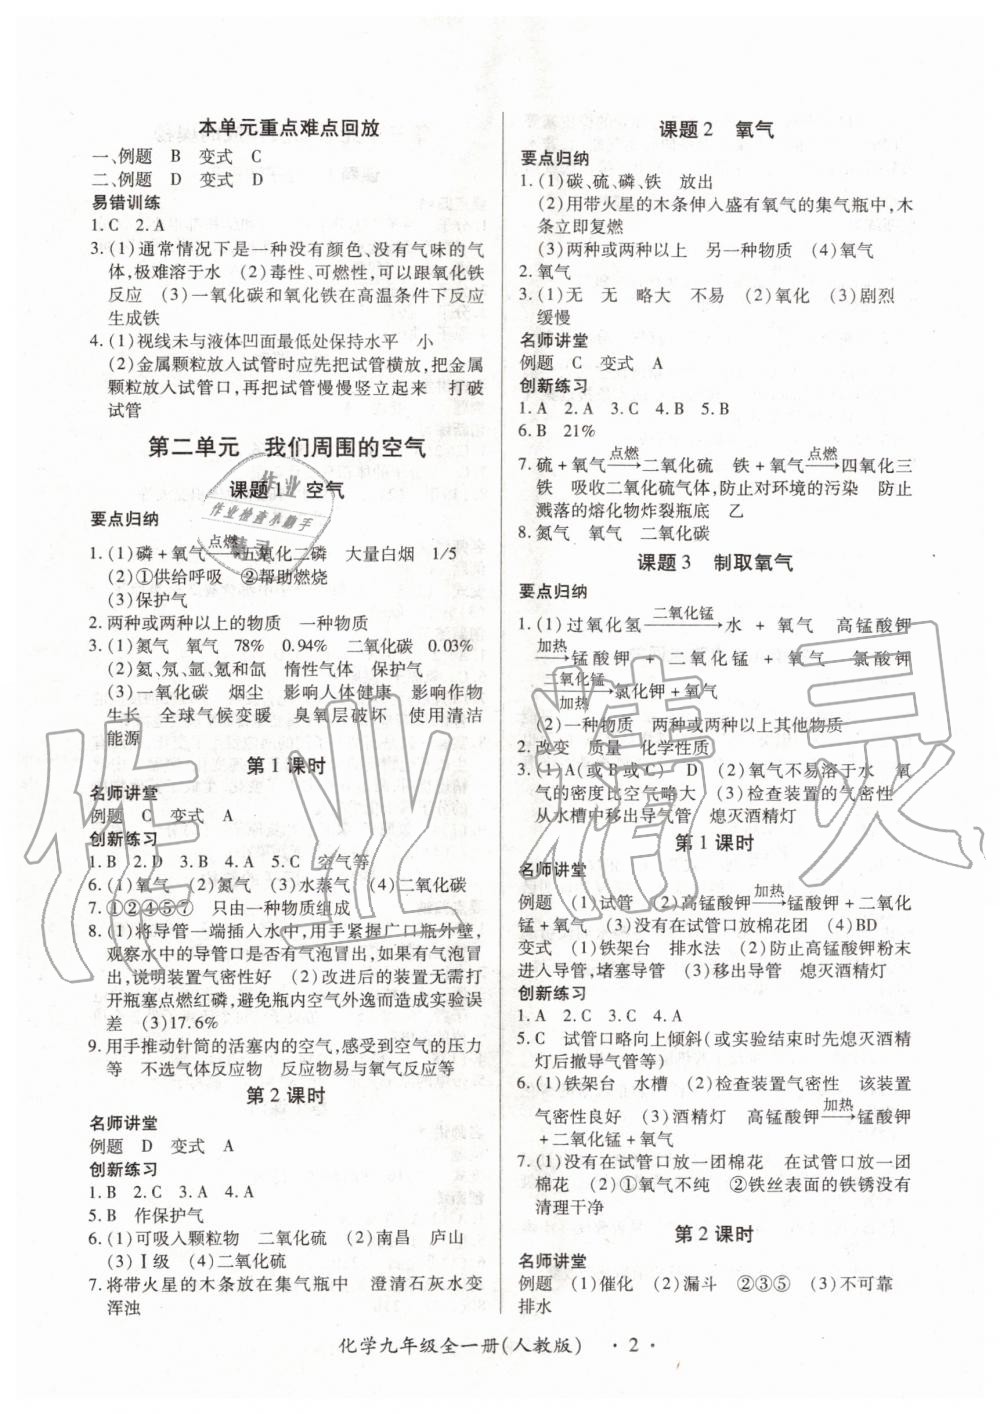 本单元重点难点回放
一、例题 B 变式 C
二、例题 D 变式 D
易错训练
1.C 2.A
3.(1)通常情况下是一种没有颜色、没有气味的气
体,极难溶于水 (2)毒性、可燃性,可以跟氧化铁
反应 (3)一氧化碳和氧化铁在高温条件下反应
生成铁
4.(1)视线未与液体凹面最低处保持水平 小
(2)金属颗粒放入试管时应先把试管横放,把金属
颗粒放入试管口,再把试管慢慢竖立起来 打破
试管
第二单元 我们周围的空气
课题1 空气
要点归纳
1.(1)磷+氧气 点燃→ 五氧化二磷 大量白烟 1/5
(2)①供给呼吸 ②帮助燃烧
(3)保护气
2.两种或两种以上的物质 一种物质
3.(1)氮气 氧气 78% 0.94% 二氧化碳 0.03%
(2)氦、氖、氩、氪和氙 惰性气体 保护气
(3)一氧化碳 烟尘 影响人体健康 影响作物
生长 全球气候变暖 臭氧层破坏 使用清洁
能源
第1课时
名师讲堂
例题 C 变式 A
创新练习
1.B 2.D 3.B 4.A 5.C 空气等
6.(1)氧气 (2)氮气 (3)水蒸气 (4)二氧化碳
7.①②④⑤⑦ 只由一种物质组成
8.(1)将导管一端插入水中,用手紧握广口瓶外壁,
观察水中的导管口是否有气泡冒出,如果有气泡冒
出,说明装置气密性好 (2)改进后的装置无需打
开瓶塞点燃红磷,避免瓶内空气外逸而造成实验误
差 (3)17.6%
9.用手推动针筒的活塞内的空气,感受到空气的压力
等 不选气体反应物 反应物易与氧气反应等
第2课时
名师讲堂
例题 D 变式 A
创新练习
1.B 2.C 3.A 4.A
5.B 作保护气
6.(1)可吸入颗粒物 二氧化硫 (2)南昌 庐山
(3)Ⅰ级 (4)二氧化硫
7.将带火星的木条放在集气瓶中 澄清石灰水变
浑浊
课题2 氧气
要点归纳
1.(1)碳、硫、磷、铁 放出
(2)用带火星的木条伸入盛有氧气的集气瓶中,木
条立即复燃
(3)两种或两种以上 另一种物质 (4)氧气
2.氧气
3.(1)无 无 略大 不易 (2)氧化 (3)剧烈
缓慢
名师讲堂
例题 C 变式 A
创新练习
1.A 2.A 3.C 4.B 5.B
6.B 21%
7.硫+氧气 点燃→ 二氧化硫 铁+氧气 点燃→ 四氧化三
铁 吸收二氧化硫气体,防止对环境的污染 防止
溅落的熔化物炸裂瓶底 乙
8.氮气 氧气 二氧化碳
课题3 制取氧气
要点归纳
1.(1)过氧化氢 二氧化锰→ 水+氧气 高锰酸钾
加热→ 锰酸钾+二氧化锰+氧气 氯酸钾
二氧化锰 加热→ 氯化钾+氧气
(2)一种物质 两种或两种以上其他物质
2.改变 质量 化学性质
3.(1)A(或B或C) D (2)氧气不易溶于水 氧
气的密度比空气略大 (3)检查装置的气密性
从水槽中移出导气管 熄灭酒精灯
第1课时
名师讲堂
例题 (1)试管 (2)高锰酸钾 加热→ 锰酸钾+二氧化
锰+氧气 (3)没有在试管口放棉花团 (4)BD
变式 (1)铁架台 排水法 (2)防止高锰酸钾粉末
进入导管,堵塞导管 (3)移出导管 熄灭酒精灯
创新练习
1.A 2.C 3.C 4.A
5.C 试管口略向上倾斜(或实验结束时先熄灭酒精
灯后撤导气管等)
6.(1)铁架台 水槽 (2)检查装置气密性 该装置
气密性良好 (3)酒精灯 高锰酸钾 加热→ 锰酸钾
+二氧化锰+氧气
7.(1)没有在试管口放一团棉花 在试管口放一团
棉花 (2)①氧气不纯 ②铁丝表面的铁锈没有
清理干净
第2课时
名师讲堂
例题 (1)催化 (2)漏斗 ②③⑤ (3)不可靠
排水
化学九年级全一册(人教版) ·2·
作业
作业检查小助手
精灵
作业精灵